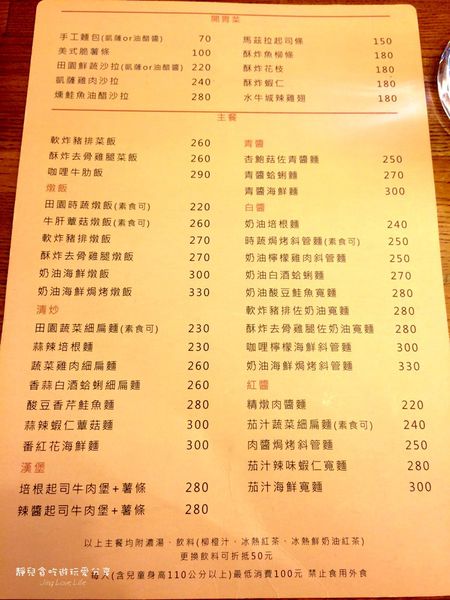 開胃菜
手工麵包(凱薩or油醋醬) 70
美式脆薯條 100
田園鮮蔬沙拉(凱薩or油醋醬) 220
凱薩雞肉沙拉 240
燻鮭魚油醋沙拉 280
馬茲拉起司條 150
酥炸魚柳條 180
酥炸花枝 180
酥炸蝦仁 180
水牛城辣雞翅 180
主餐
軟炸豬排菜飯 260
酥炸去骨雞腿菜飯 260
咖哩牛肋飯 290
燉飯
田園時蔬燉飯(素食可) 220
牛肝蕈菇燉飯(素食可) 260
軟炸豬排燉飯 270
酥炸去骨雞腿燉飯 270
奶油海鮮燉飯 300
奶油海鮮焗烤燉飯 330
清炒
田園蔬菜細扁麵(素食可) 230
蒜辣培根麵 230
蔬菜雞肉細扁麵 260
香蒜白酒蛤蜊細扁麵 260
酸豆香芹鮭魚麵 280
蒜辣蝦仁蕈菇麵 300
番紅花海鮮麵 300
漢堡
培根起司牛肉堡+薯條 280
辣醬起司牛肉堡+薯條 280
青醬
杏鮑菇佐青醬麵 250
青醬蛤蜊麵 270
青醬海鮮麵 300
白醬
奶油培根麵 240
時蔬焗烤斜管麵(素食可) 250
奶油檸檬雞肉斜管麵 250
奶油白酒蛤蜊麵 270
奶油酸豆鮭魚寬麵 280
軟炸豬排佐奶油寬麵 280
酥炸去骨雞腿佐奶油寬麵 280
咖哩檸檬海鮮斜管麵 300
奶油海鮮焗烤斜管麵 330
紅醬
精燉肉醬麵 220
茄汁蔬菜細扁麵(素食可) 240
肉醬焗烤斜管麵 250
茄汁辣味蝦仁寬麵 280
茄汁海鮮寬麵 300
以上主餐均附濃湯、飲料(柳橙汁、冰熱紅茶、冰熱鮮奶油紅茶)
更換飲料可折抵50元
每人(含兒童身高110公分以上)最低消費100元 禁止食用外食
靜兒貪吃遊玩愛分享
Jing Love Life